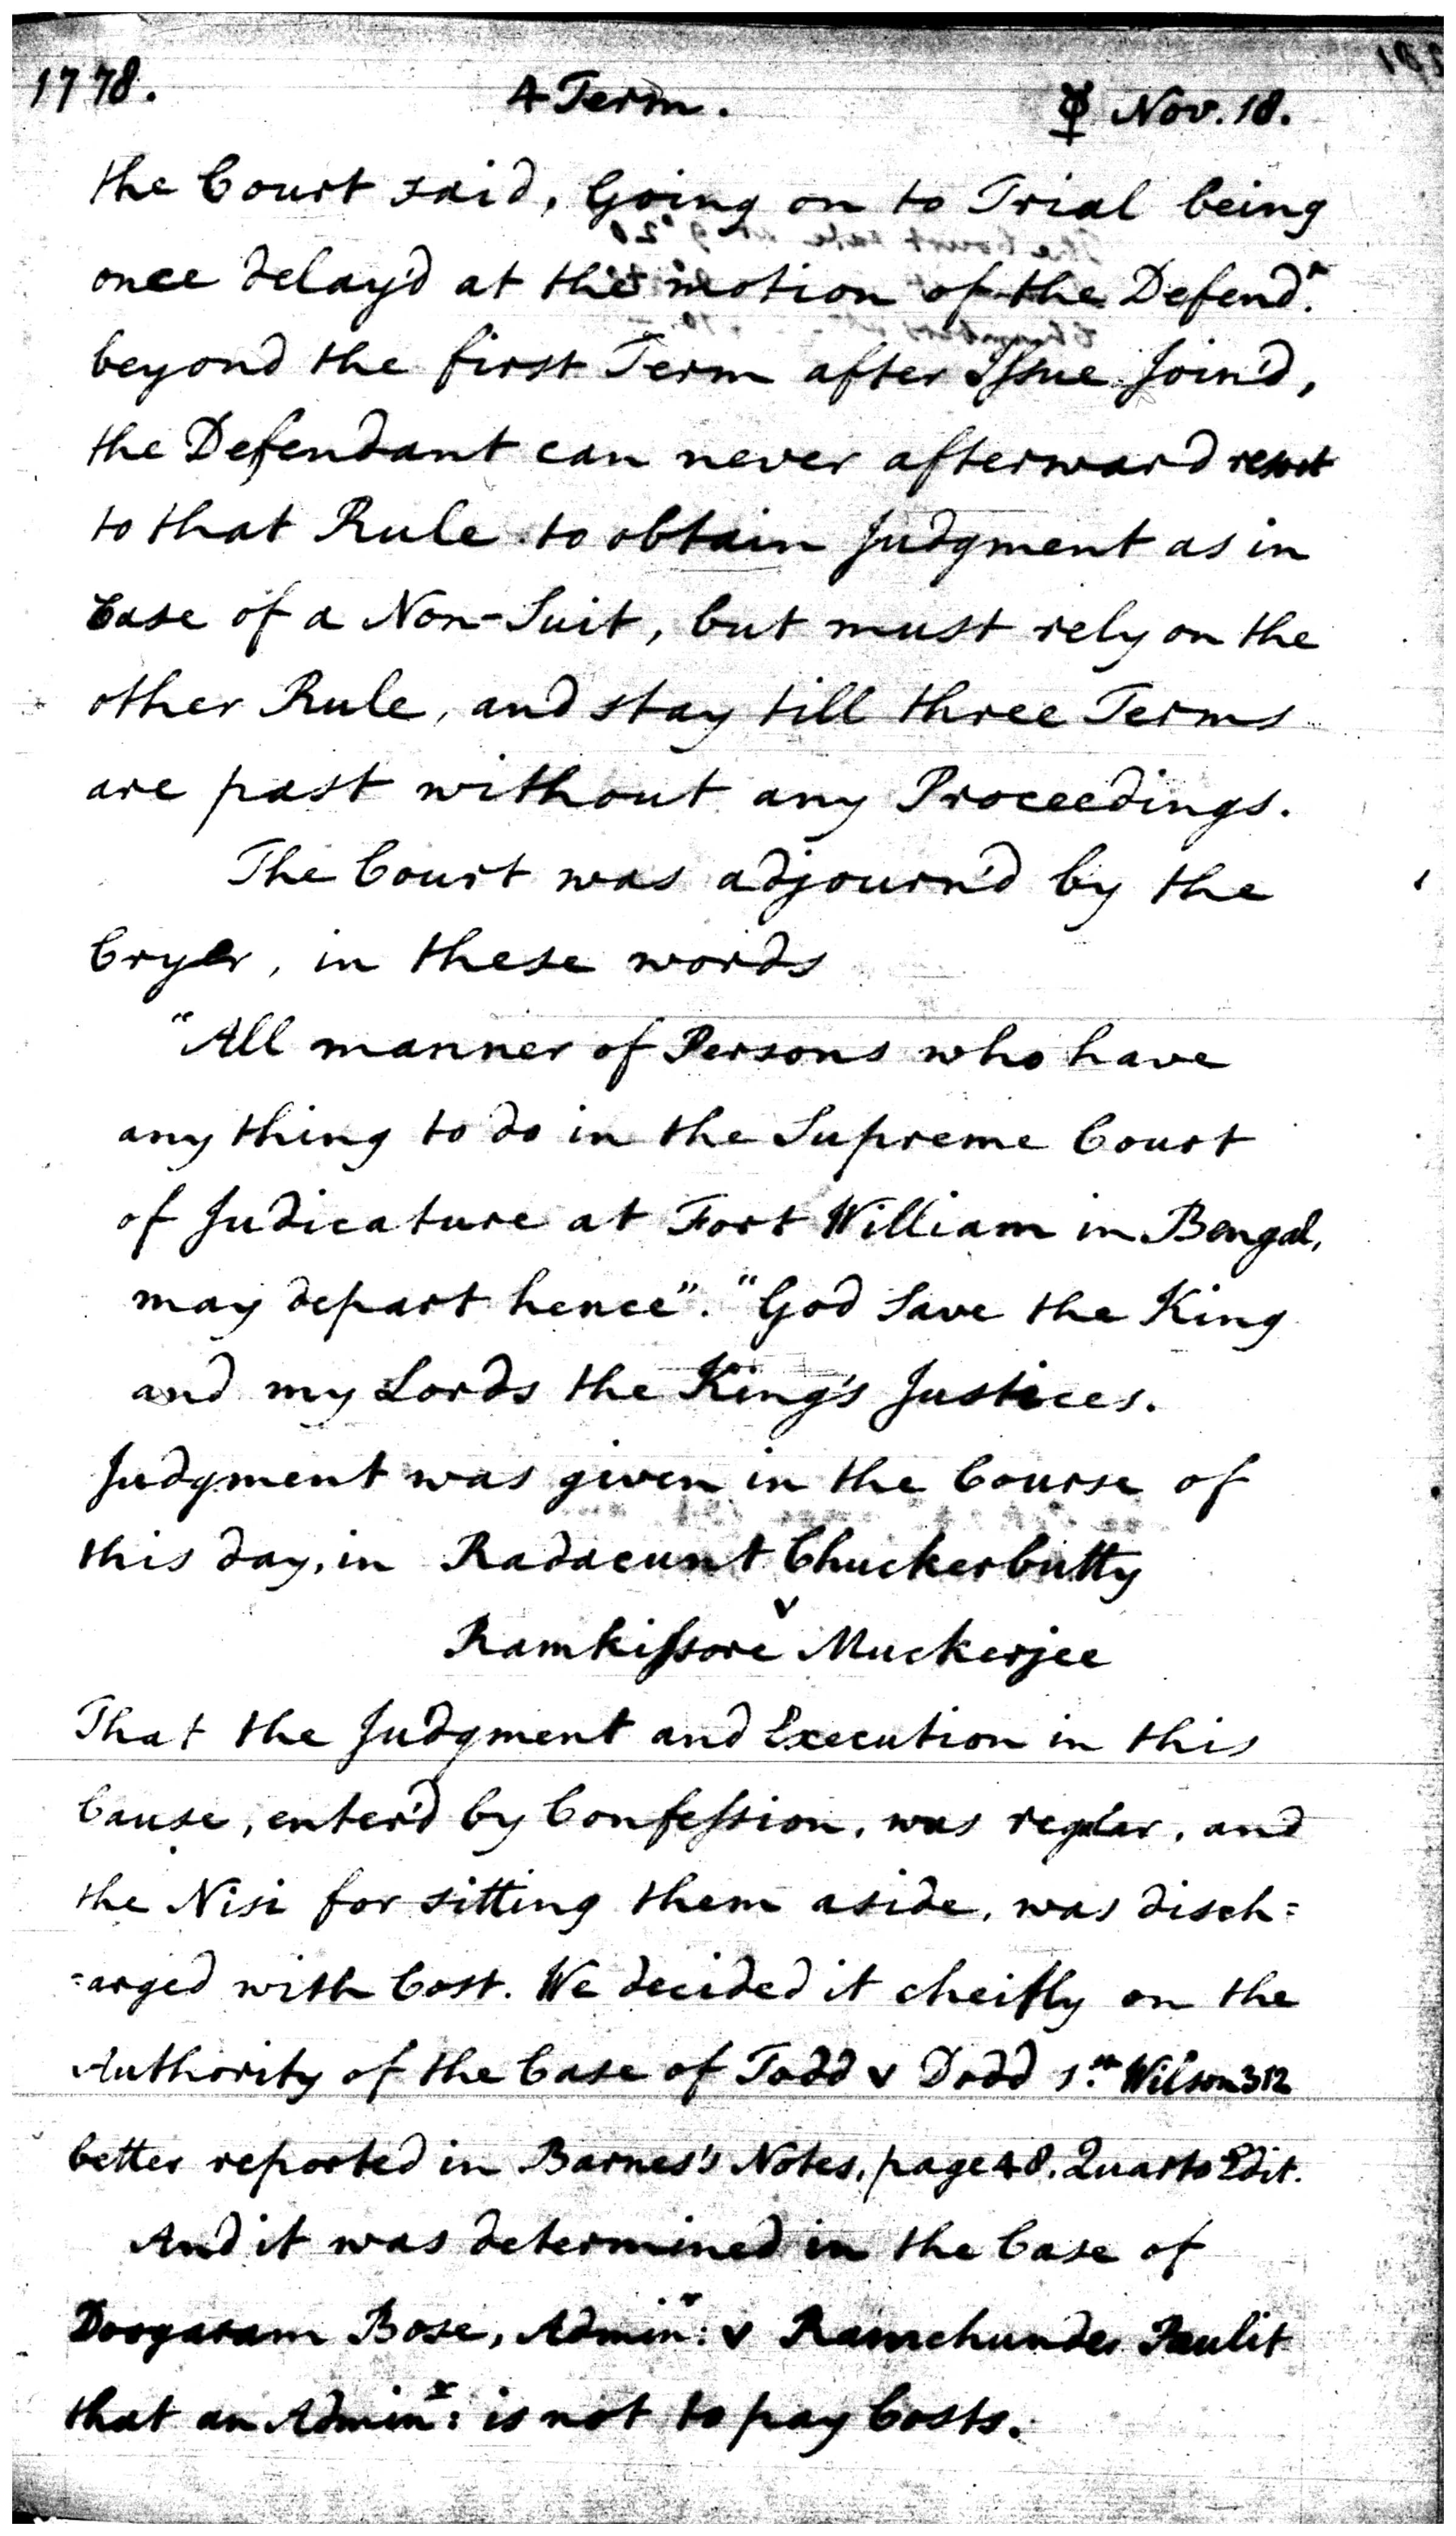 1778. 4 Term. ☿ Nov. 18.
the Court said, Going on to Trial being
once delay'd at the motion of the Defend.t
beyond the first Term after Issue Join'd,
the Defendant can never afterward resort
to that Rule to obtain Judgment as in
Case of a Non-Suit, but must rely on the
other Rule, and stay till three Terms
are past without any Proceedings.
The Court was adjourn'd by the
Cryer, in these words
"All manner of Persons who have
any thing to do in the Supreme Court
of Judicature at Fort William in Bengal,
may depart hence". "God Save the King
and my Lords the King's Justices.
Judgment was given in the Course of
this day, in Radacunt Chuckerbutty
v
Ramkissore Muckerjee
That the Judgment and Execution in this
Cause, enter'd by Confession, was regular, and
the Nisi for sitting them aside, was disch=
=arged with Cost. We decided it cheifly on the
Authority of the Case of Todd v Dodd 1.st Wilson 312
better reported in Barnes's Notes, page 48. Quarto Edit.
And it was determined in the Case of
Doorgaram Bose, Admin.r: v Ramchunder Paulit
that an Admin.r: is not to pay Costs.